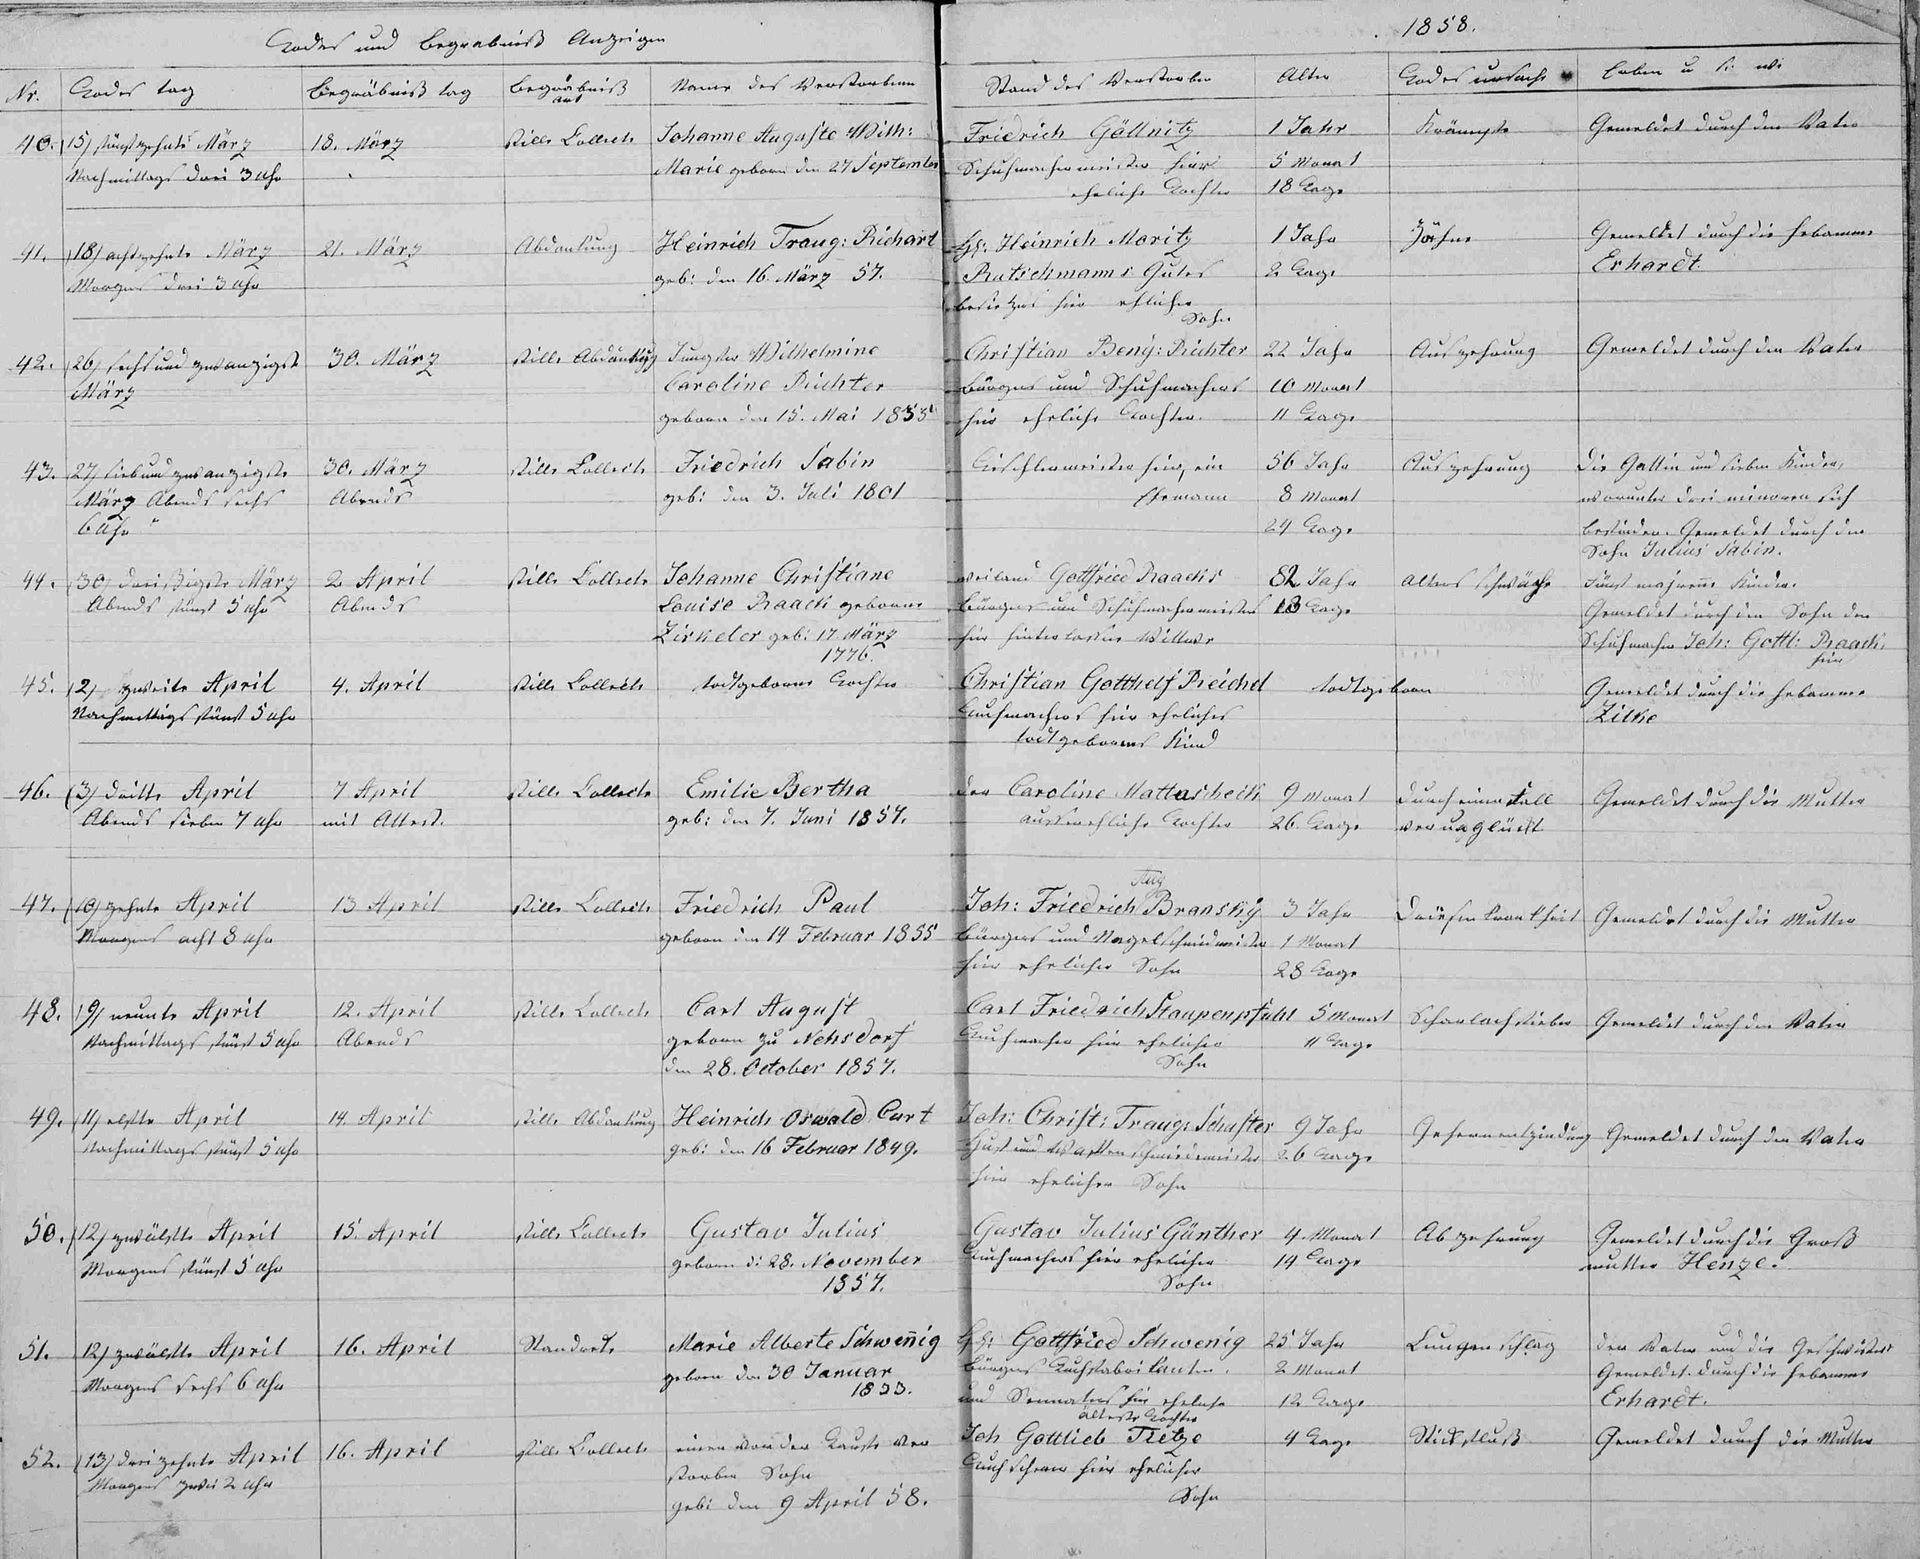 Todes und Begräbniß Anzeigen
1858.
Nr. Todes tag Begräbniß tag Begräbniß art Name des Verstorbenen Stand des Verstorben Alter Todes ursache Erben u
40. (15) fünfzehnte März 18. März Stille Collecte Johanne Auguste Wilh: Friedrich Göllnitz 1 Jahr Krämpfe Gemeldet durch den Vater
Nachmittags drei 3 Uhr Marie geboren den 27 September Schuhmachermeister hier 5 Monat
eheliche Tochter 18 Tage
41. (18) achtzehnte März 21. März Abdankung Heinrich Traug: Richart H: Heinrich Moritz 1 Jahr Zähne Gemeldet durch die Hebamme
Morgens drei 3 Uhr geb: den 16. März 57. Rutschmanns Guts 2 Tage Erhardt.
besitzers hier ehlicher
Sohn
42. (26) sechs und zwanzigste 30. März Stille Abdankung Jungfer Wilhelmine Christian Benj: Richter 22 Jahr Auszehrung Gemeldet durch den Vater
März Caroline Richter Bürgers und Schuhmachers 10 Monat
geboren den 15. Mai 1835 hier eheliche Tochter. 11 Tage
43. (27) siebundzwanzigste 30. März Stille Collecte Friedrich Sabin Tischlermeister hier, ein 56 Jahr Auszehrung Die Gattin und sieben Kinder,
März Abends sechs Abends geb: den 3. Juli 1801 Ehemann 8 Monat worunter drei minoren sich
6 Uhr 24 Tage befinden. Gemeldet durch den
Sohn Julius Sabin.
44. (30) dreißigste März 2 April Stille Collecte Johanne Christiane weiland Gottfried Raacks 82 Jahr Altersschwäche Fünf majorenne Kinder.
Abends fünf 5 Uhr Abends Louise Raack geborne Bürgers und Schuhmachermeisters 13 Tage Gemeldet durch den Sohn den
Zirkeler geb: 17 März hier hinterlassene Wittwe Schuhmacher Joh: Gottl: Raack.
1776. hier
45. (2) zweite April 4. April Stille Collecte todtgeborne Tochter Christian Gotthelf Reichel todtgeboren Gemeldet durch die Hebamme
Nachmittags fünf 5 Uhr Tuchmachers hier eheliches Zilke
todtgebornes Kind
46. (3) dritte April 7 April Stille Collecte Emilie Bertha der Caroline Mattascheck 9 Monat durch einen Fall Gemeldet durch die Mutter
Abends sieben 7 Uhr mit Attest. geb: den 7. Juni 1857. außereheliche Tochter 26 Tage verunglückt
47. (10) zehnte April 13 April Stille Collecte Friedrich Paul Joh: Friedrich Aug Bransky 3 Jahr Drüsenkrankheit Gemeldet durch die Mutter
Morgens acht 8 Uhr geboren den 14 Februar 1855 Bürgers und Nagelschmidmeister 1 Monat
hier ehelicher Sohn 28 Tage
48. (9) neunte April 12. April Stille Collecte Carl August Carl Friedrich Staupenpfuhl 5 Monat Scharlachfieber Gemeldet durch den Vater
Nachmittags fünf 5 Uhr Abends geboren zu Nehsdorf Tuchmacher hier ehelicher 11 Tage
den 28. October 1857. Sohn
49. (11) elfte April 14. April Stille Abdankung Heinrich Oswald Curt Joh: Christ: Traug: Schuster 9 Jahr Gehirnentzündung Gemeldet durch den Vater
Nachmittags fünf 5 Uhr geb: den 16 Februar 1849. Huf und Waffenschmiedemeister 26 Tage
hier ehelicher Sohn
50. (12) zwölfte April 15. April Stille Collecte Gustav Julius Gustav Julius Günther 4 Monat Abzehrung Gemeldet durch die Groß
Morgens fünf 5 Uhr geboren d: 28. November Tuchmachers hier ehelicher 14 Tage mutter Henze.
1857. Sohn
51. (12) zwölfte April 16. April Standrede Marie Alberte Schwenig H: Gottfried Schwenig 25 Jahr Lungenschlag der Vater und die Geschwister
Morgens sechs 6 Uhr geboren den 30 Januar Bürgers Tuchfabrikanten. 2 Monat Gemeldet durch die Hebamme
1833. und Senators hier eheliche 12 Tage Erhardt.
älteste Tochter
52. (13) dreizehnte April 16. April Stille Collecte einen vor der Taufe ver Joh Gottlieb Tietze 4 Tage Stickfluß Gemeldet durch die Mutter
Morgens zwei 2 Uhr storben Sohn Tuchscherer hier ehelicher
geb: den 9 April 58. Sohn